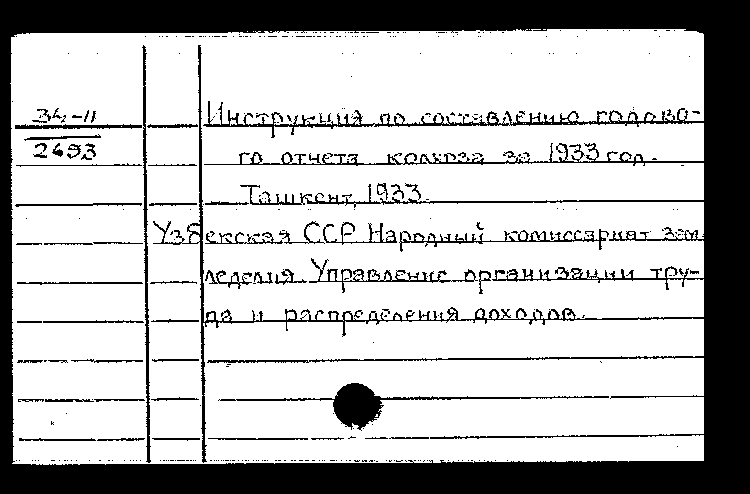 34-11
2693
Инструкция по составлению годово-
го отчета колхоза за 1933 год.
Ташкент, 1933.
Узбекская ССР Народный комиссариат зем
леделия. Управление организации тру-
да и распределения доходов.